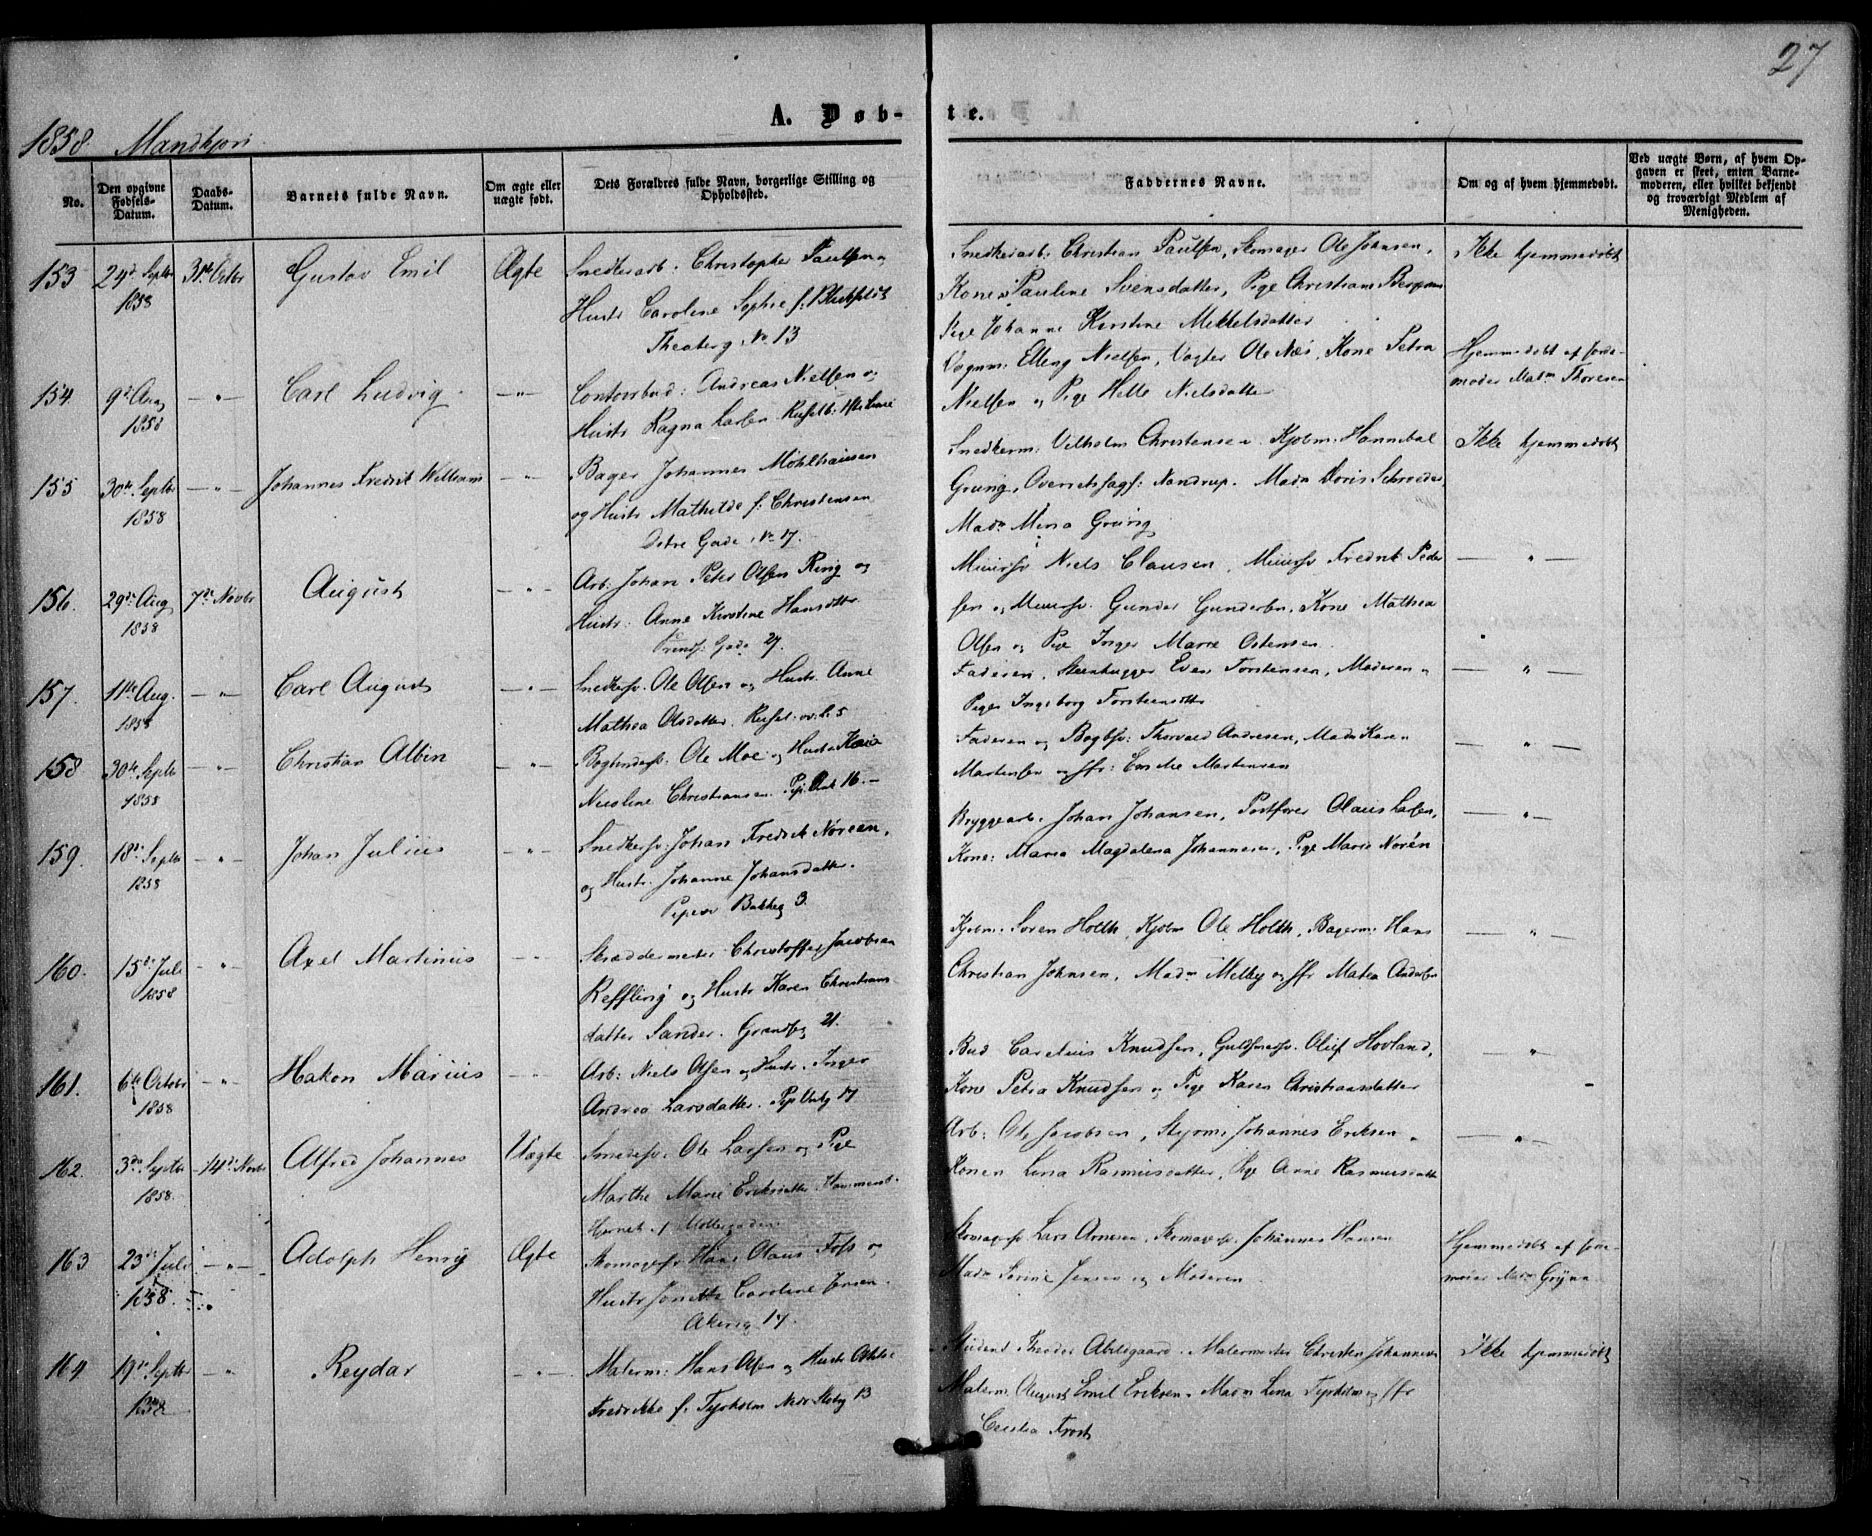 27
A. Døb-te.
1858. Mandkjøn
No.
Den opgivne Fødsels-Datum.
Daabs-Datum.
Barnets fulde Navn.
Om ægte eller uægte født.
Dets Forældres fulde Navn, borgerlige Stilling og Opholdssted.
Faddernes Navne.
Om og af hvem hjemmedøbt.
Ved uægte Børn, af hvem Opgaven er skeet, enten Barnemoderen, eller hvilket bekjendt og troværdigt Medlem af Menigheden.
153 29de Septbr 1858 31te Octbr Gustav Emil Ægte
Snedkerarb: Christopher Paulsen og
Hustr Caroline Sophie f:
Theaterg. No 13
Snedkerarb: Christian Paulsen, Skomager Ole Johansen,
Kone Pauline Svensdatter, Pige Christiane
Pige Johanne Kirstine Mikkelsdatter
Ikke hjemmedøbt
154. 9de Aug 1858 —"— Carl Ludvig —"—
Contoirbud: Andreas Nielsen og
Hustr Ragna Larsen
Vognm: Elling Nielsen, Vægter Ole Næs, Kone Petra
Nielsen og Pige Helle Nielsdatter
Hjemmedøbt af Jorde-
moder Madm Thoresen
155 30te Septbr 1858 —"— Johannes Fredrik William —"—
Bager Johannes Möhlhausen
og Hustr Mathilde f: Christensen
Østre Gade No 17.
Snedkerm: Vilhelm Christensen, Kjøbm: Hannibal
Grüng, Overretssagf: Nandrup. Madm Doris Schrøder
Madm Mina Grüng
Ikke hjemmedøbt
156. 29de Aug 1858 7de Novbr August —"—
Arb. Johan Peter Olsen Ring og
Hustr: Anne Kirstine Hansdtr
Gade 27.
Muursv Niels Clausen, Muursv Fredrik Peder
sen og Muursv. Gunder Gundersen, Kone Mathea
Olsen og Pige Inger Marie Ostensen
— " —
157. 11te Aug. 1858 —"— Carl August —"—
Snedkersv. Ole Olsen og Hustr. Anne
Mathea Olsdatter.
Faderen, Steenhugger Even Torstensen, Moderen og
Pige Ingeborg Torstensdtr
— " —
158 30te Septb 1858 —"— Christian Albin —"—
Bogbindersv. Ole Moe og Hustr Karen
Nicoline Christiansen. 16.
Faderen og Bogbsv: Thorvald Andresen, Madm Karen
Martensen og Martensen
— " —
159. 18de Septbr 1858 —"— Johan Julius —"—
Snedkersv: Johan Fredrik Noreen,
og Hustr. Johanne Johansdatter.
Bakkeg 3.
Bryggearb. Johan Johansen, Postfører Olaus Larsen,
Kone: Maria Magdalena Johannesen, Pige Marie Norén
— " —
160. 15de Juli 1858 —"— Axel Martinius —"—
Skræddermester Christoffer Jacobsen
Reffling og Hustr Karen Christians-
datter Sander. 21.
Kjøbm: Søren Holth, Kjøbm Ole Holth, Bagerm: Hans
Christian Johnsen, Madm Melby og Jfr Matea Andersen
— " —
161. 6te Octobr 1858 —"— Hakon Marius —"—
Arb: Niels Olsen og Hustr. Inger
Andrea Larsdatter. 17
Bud Carelius Knudsen, Guldsmedsv. Oluf Hovland,
Kone Petra Knudsen og Pige Karen Christiansdatter
— " —
162. 3de Septbr 1858. 14de Novbr Alfred Johannes Uægte
Smedesv. Ole Larsen og Pige
Marthe Marie Eriksdatter
Hjørnet af Møllergaden
Arb: Ole Jacobsen, Styrm: Johannes Eriksen,
Konen Lina Rasmusdatter, Pige Anne Rasmusdatter
— " —
163 23de Juli 1858. —"— Adolph Henrig Ægte
Skomagersv Hans Olaus Foss og
Hustr Caroline Jensen.
Akersg 17.
Skomagersv Lars Arnesen, Skomagersv. Johannes Hansen
Madm Sorine Jensen og Moderen
Hjemmedøbt af Jorde-
moder Madm
164 19de Septbr 1858 —"— Reydar —"—
Malerm: Hans Olsen og Hustr
Fredrikke f. Tyrholm 13
Student Theodor Abildgaard. Malermester Christen Johannesen
Malerm August Emil Eriksen. Madm Lina Tyrholm og Jfr
Cecilia Frost
Ikke hjemmedøbt